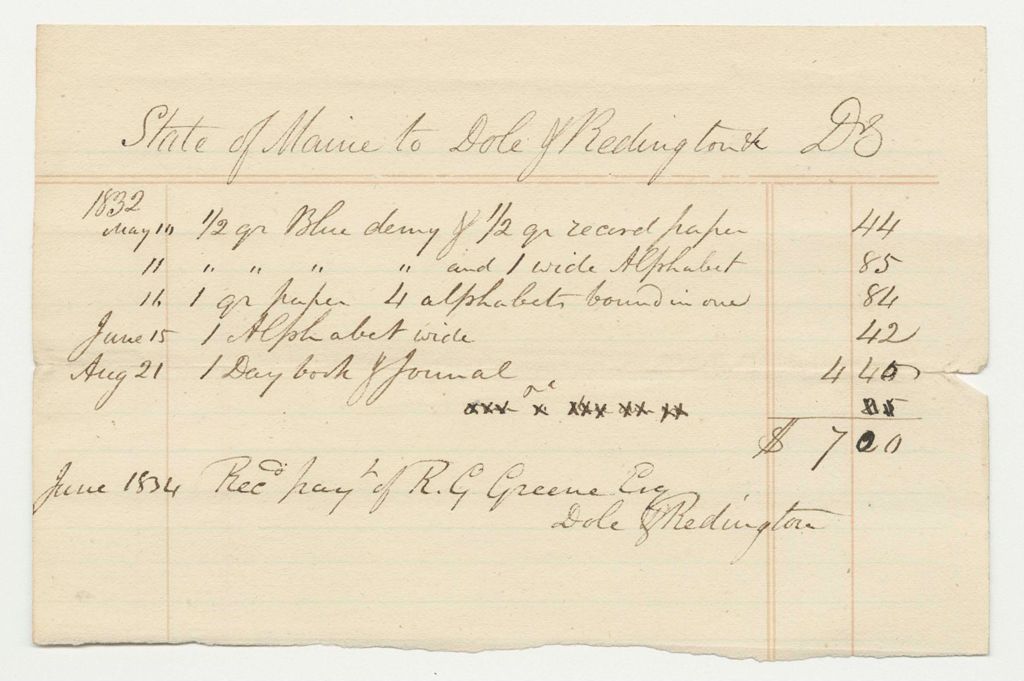 State of Maine to Dole & Redington Dr
1832
May 10 1/2 qr Blue demy & 1/2 qr record paper 44
11 " " " " and 1 wide Alphabet 85
16 1 qr paper 4 alphabets bound in one 84
June 15 1 Alphabet wide 42
Aug 21 1 Day book & Journal 4 45
$ 7 00
June 1834 Recd payt of R. G Greene Esq
Dole & Redington